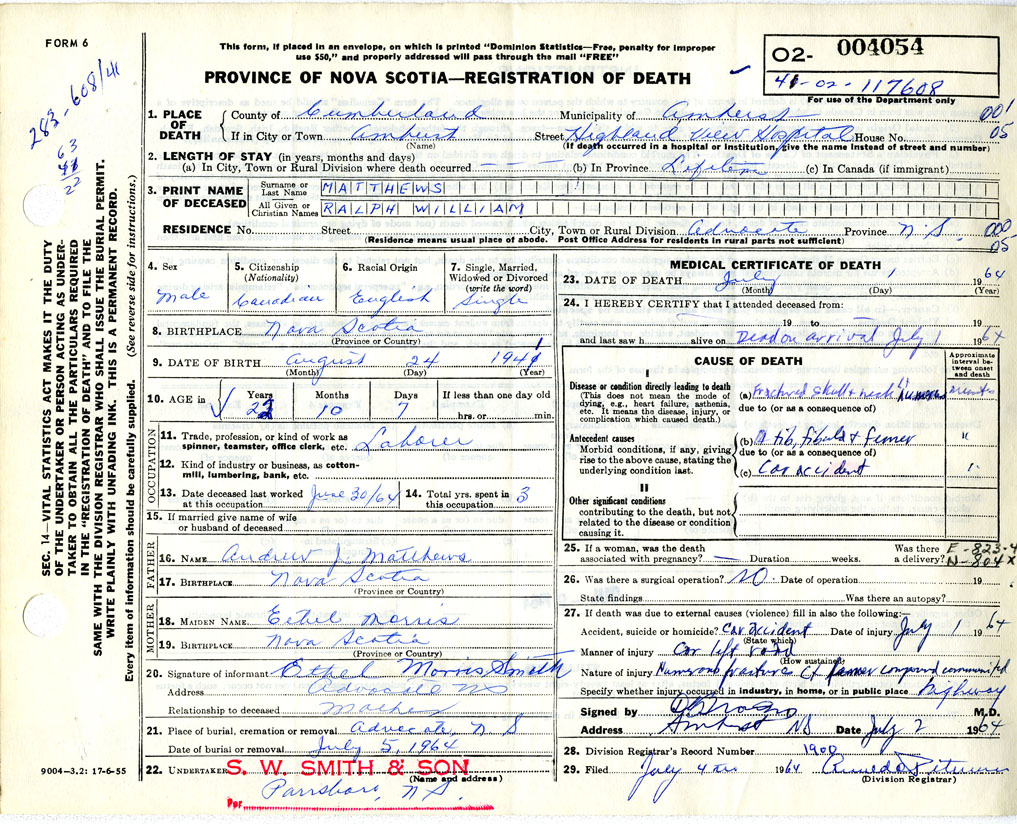 FORM 6
283-608/41
63
22
This form, if placed in an envelope, on which is printed "Dominion Statistics—Free, penalty for improper
use $50," and properly addressed will pass through the mail "FREE"
PROVINCE OF NOVA SCOTIA—REGISTRATION OF DEATH
O2- 004054
41-02-117608
For use of the Department only
SEC. 14—VITAL STATISTICS ACT MAKES IT THE DUTY
OF THE UNDERTAKER OR PERSON ACTING AS UNDER-
TAKER TO OBTAIN ALL THE PARTICULARS REQUIRED
IN THE "REGISTRATION OF DEATH" AND TO FILE THE
SAME WITH THE DIVISION REGISTRAR WHO SHALL ISSUE THE BURIAL PERMIT.
WRITE PLAINLY WITH UNFADING INK. THIS IS A PERMANENT RECORD.
Every item of information should be carefully supplied. (See reverse side for instructions.)
1. PLACE OF DEATH
County of Cumberland Municipality of Amherst 001
If in City or Town Amherst Street Highland View Hospital House No. 05
(Name) (If death occurred in a hospital or institution, give the name instead of street and number)
2. LENGTH OF STAY (in years, months and days)
(a) In City, Town or Rural Division where death occurred - - - (b) In Province Lifetime (c) In Canada (if immigrant)
3. PRINT NAME OF DECEASED
Surname or Last Name MATTHEWS
All Given or Christian Names RALPH WILLIAM
RESIDENCE No. Street City, Town or Rural Division Advocate Province N.S. 000
05
(Residence means usual place of abode. Post Office Address for residents in rural parts not sufficient)
4. Sex
Male
5. Citizenship
(Nationality)
Canadian
6. Racial Origin
English
7. Single, Married, Widowed or Divorced
(write the word)
Single
8. BIRTHPLACE Nova Scotia
(Province or Country)
9. DATE OF BIRTH August 24 1941
(Month) (Day) (Year)
10. AGE in Years Months Days If less than one day old
22 10 7 hrs. or min.
OCCUPATION
11. Trade, profession, or kind of work as
spinner, teamster, office clerk, etc. Laborer
12. Kind of industry or business, as cotton-
mill, lumbering, bank, etc.
13. Date deceased last worked
at this occupation June 30/64
14. Total yrs. spent in
this occupation 3
15. If married give name of wife
or husband of deceased
FATHER
16. NAME Andrew J. Matthews
17. BIRTHPLACE Nova Scotia
(Province or Country)
MOTHER
18. MAIDEN NAME Ethel Morris
19. BIRTHPLACE Nova Scotia
(Province or Country)
20. Signature of informant Ethel Morris Smith
Address Advocate NS
Relationship to deceased Mother
21. Place of burial, cremation or removal Advocate, N S
Date of burial or removal July 5, 1964
22. UNDERTAKER S. W. SMITH & SON
(Name and address)
Parrsboro, N S.
Per
MEDICAL CERTIFICATE OF DEATH
23. DATE OF DEATH July 1 1964
(Month) (Day) (Year)
24. I HEREBY CERTIFY that I attended deceased from:
19 to 19
and last saw h alive on Dead on arrival July 1 1964
CAUSE OF DEATH
Approximate interval between onset and death
I
Disease or condition directly leading to death
(This does not mean the mode of
dying, e.g., heart failure, asthenia,
etc. It means the disease, injury, or
complication which caused death.)
(a) Fractured skull & neck, humerus minutes
due to (or as a consequence of)
Antecedent causes
Morbid conditions, if any, giving
rise to the above cause, stating the
underlying condition last.
(b) tib, fibula & femer "
due to (or as a consequence of)
(c) Car accident "
II
Other significant conditions
contributing to the death, but not
related to the disease or condition
causing it.
25. If a woman, was the death
associated with pregnancy? — Duration weeks. Was there
a delivery?
E-823-4
N-804X
26. Was there a surgical operation? NO Date of operation 19
State findings Was there an autopsy?
27. If death was due to external causes (violence) fill in also the following:—
Accident, suicide or homicide? Car accident Date of injury July 1 1964
(State which)
Manner of injury Car left road
(How sustained)
Nature of injury Numerous fracture of femer compound comminuted
Specify whether injury occurred in industry, in home, or in public place Highway
Signed by M.D.
Address Amherst NS Date July 2 1964
28. Division Registrar's Record Number 1900
29. Filed July 4 1964
(Division Registrar)
9004—3.2: 17-6-55